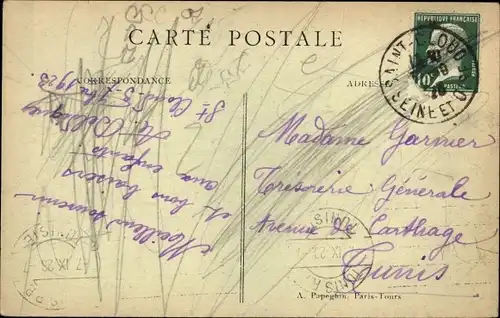 CARTE POSTALE
CORRESPONDANCE
ADRESSE
RÉPUBLIQUE FRANÇAISE
10c
POSTES
SAINT-CLOUD
SEINE ET O
St Cloud 5-7bre 1923
Meilleur souvenir
et bons baisers
aux enfants
Madame Garnier
Trésorerie Générale
Avenue de Carthage
Tunis
TUNIS
A. Papeghin, Paris-Tours